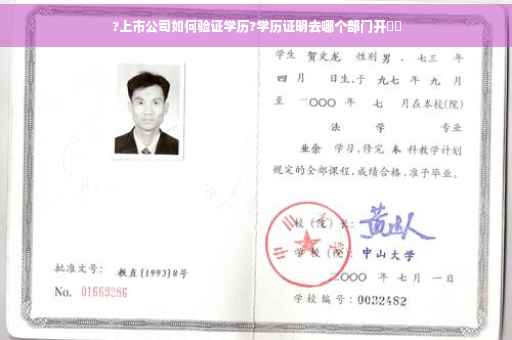 ?上市公司如何验证学历?学历证明去哪个部门开
学生 贺文龙 性别 男 、七三 年
四 月 日生,于 九七 年 九 月
至 二〇〇〇 年 七 月在本校(院)
法 学 专业
业余 学习,修完 本 科教学计划
规定的全部课程,成绩合格,准予毕业。
校(院)长:
学 校(院): 中山大学
二〇〇〇 年 七 月 一 日
学校编号: 0032482
批准文号: 教直[1993]8号
No. 01669286